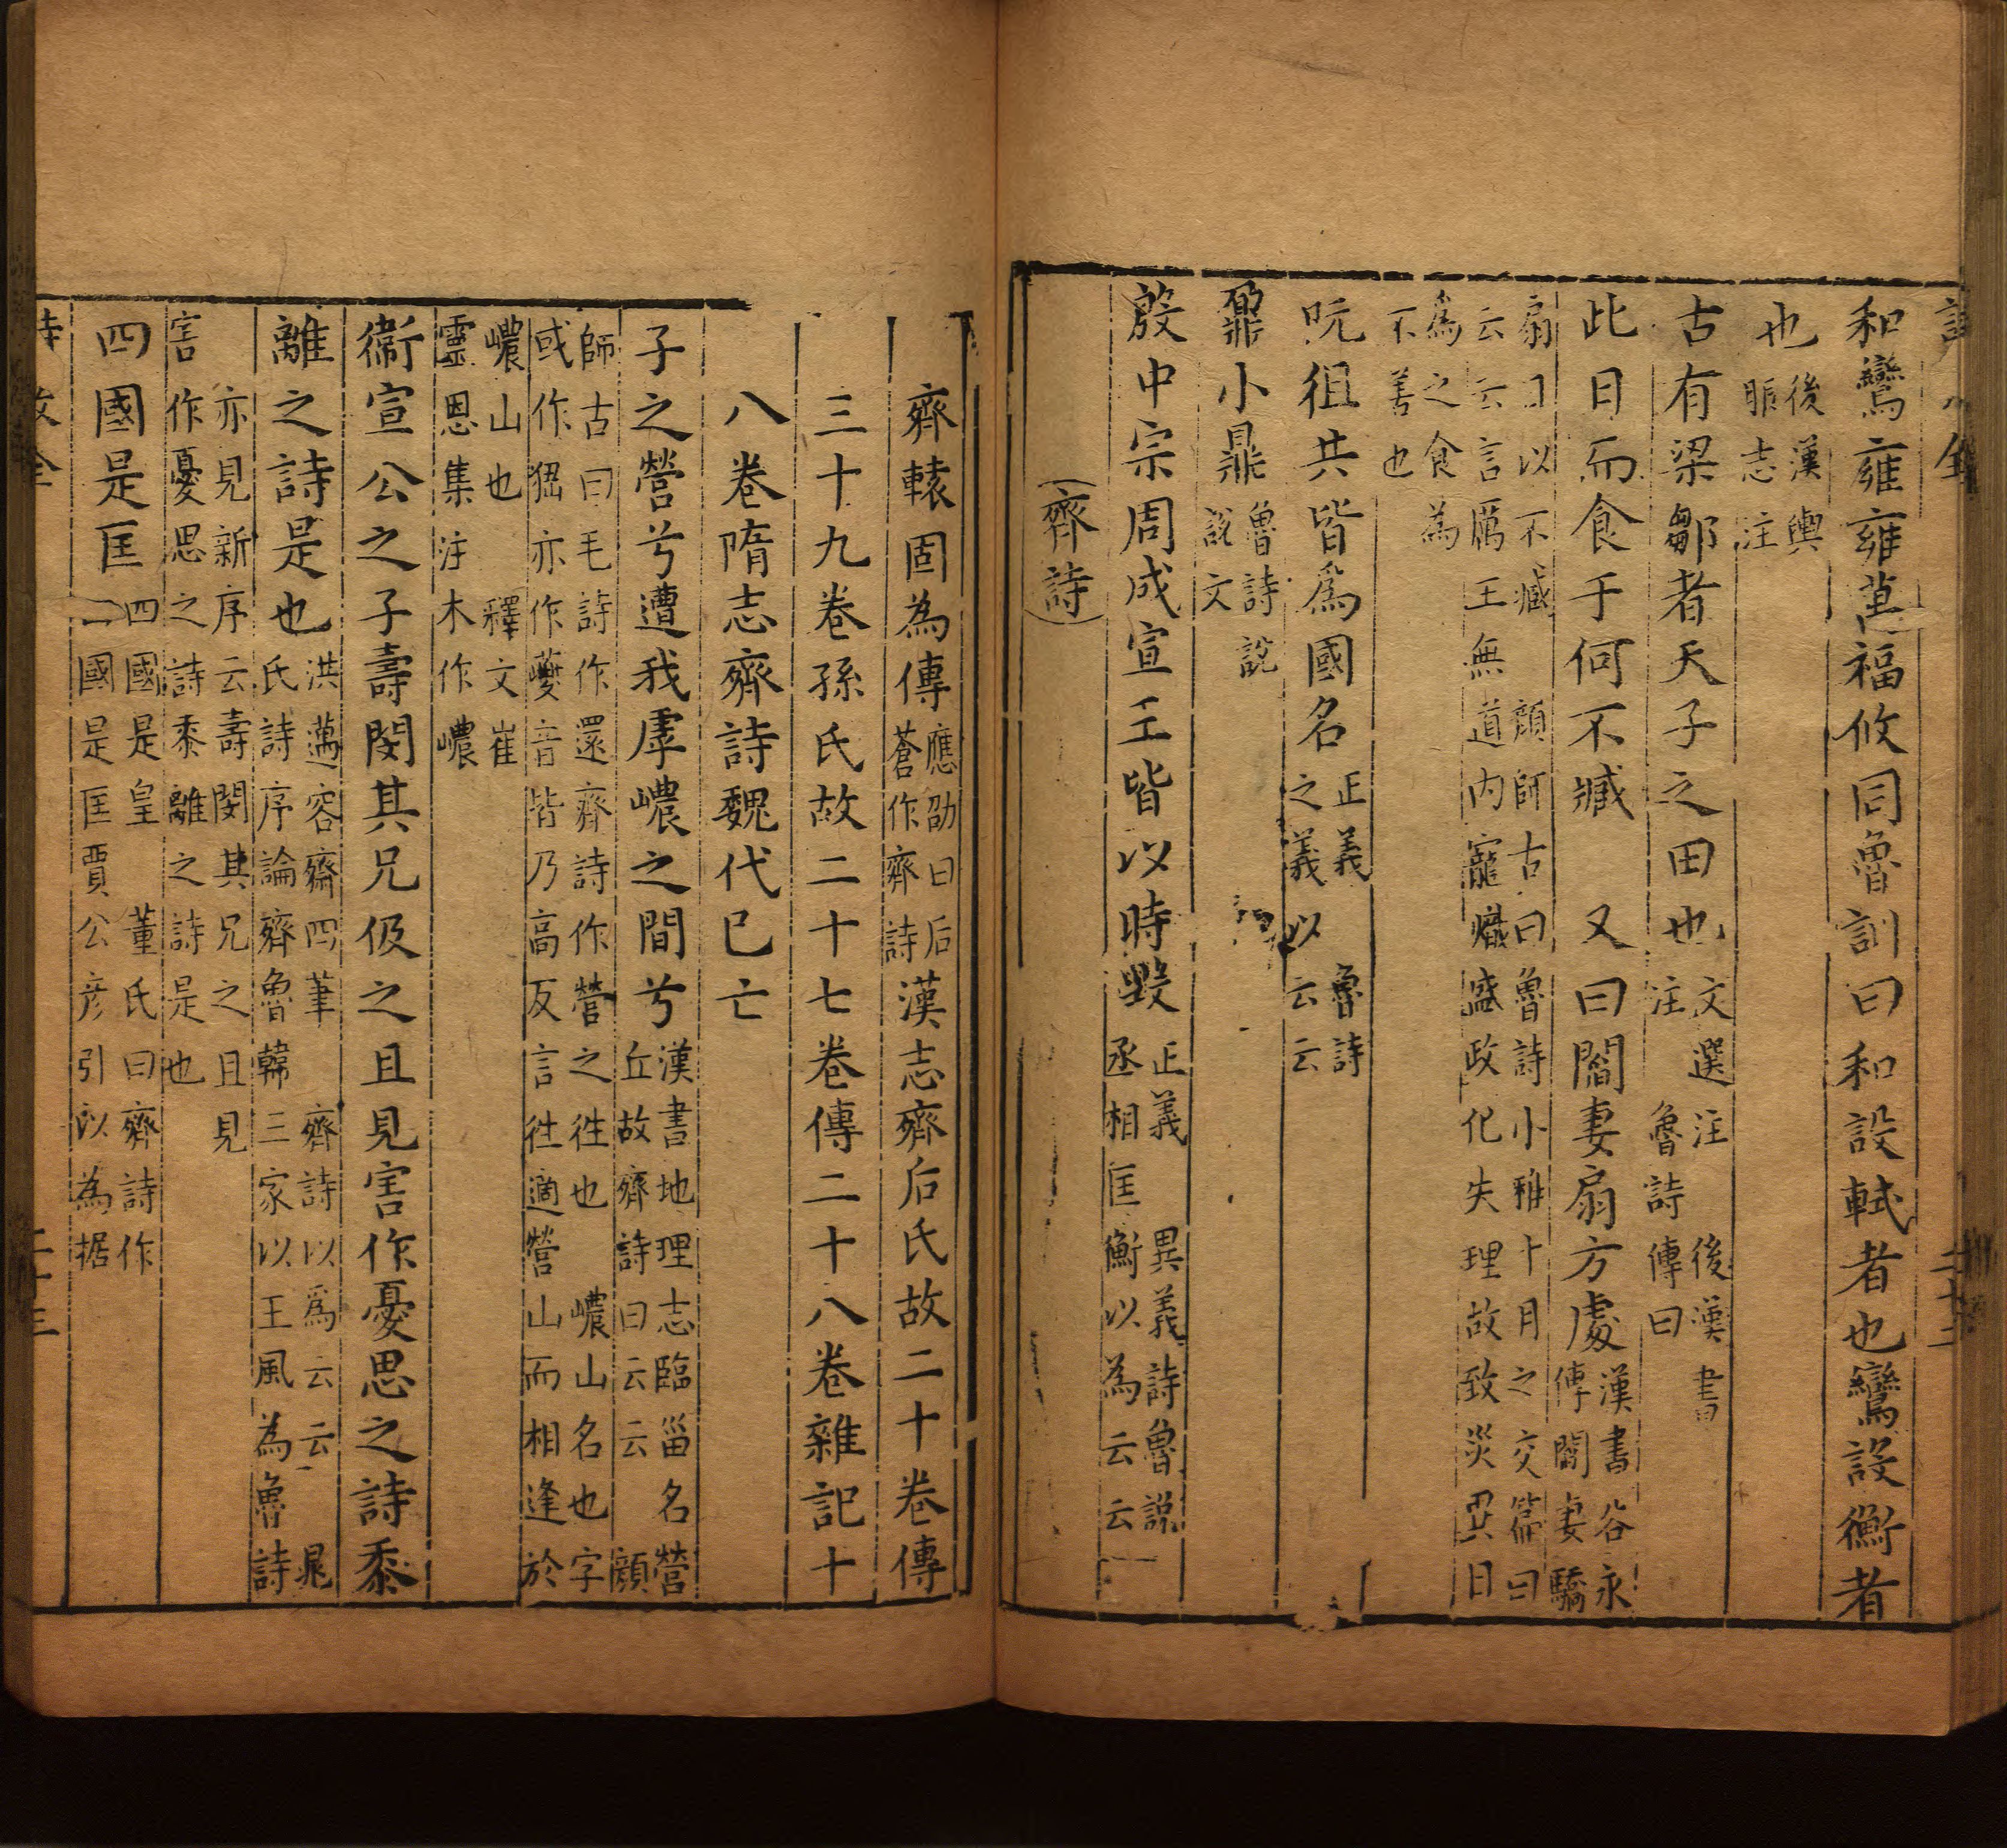 和鸞雍雍萬福攸同魯訓曰和設軾者也鸞設衡者
也後漢輿服志注
古有梁鄒者天子之田也文選注魯詩傳曰後漢書注
此日而食于何不臧又曰閻妻扇方處漢書谷永傳閻妻驕
扇日以不臧顏師古曰魯詩小雅十月之交篇曰
云云言厲王無道內寵熾盛政化失理故致災異日
為之食為
不善也
阮徂共皆為國名正義魯詩之義以云云
鼐小鼎魯詩說說文
殷中宗周成宣王皆以時毀正義異義詩魯說丞相匡衡以為云云
齊詩
齊轅固為傳應劭曰后蒼作齊詩漢志齊后氏故二十卷傳
三十九卷孫氏故二十七卷傳二十八卷雜記十
八卷隋志齊詩魏代已亡
子之營兮遭我虖嶩之間兮漢書地理志臨甾名營丘故齊詩曰云云顏
師古曰毛詩作還齊詩作營之往也嶩山名也字
或作猺亦作巙音皆乃高反言往適營山而相逢於
嶩山也釋文崔
靈恩集注本作嶩
衞宣公之子壽閔其兄伋之且見害作憂思之詩黍
離之詩是也洪邁容齋四筆齊詩以為云云晁氏詩序論齊魯韓三家以王風為魯詩
亦見新序云壽閔其兄之且見
害作憂思之詩黍離之詩是也
四國是匡四國是皇董氏曰齊詩作
四國是匡賈公彥引以為据